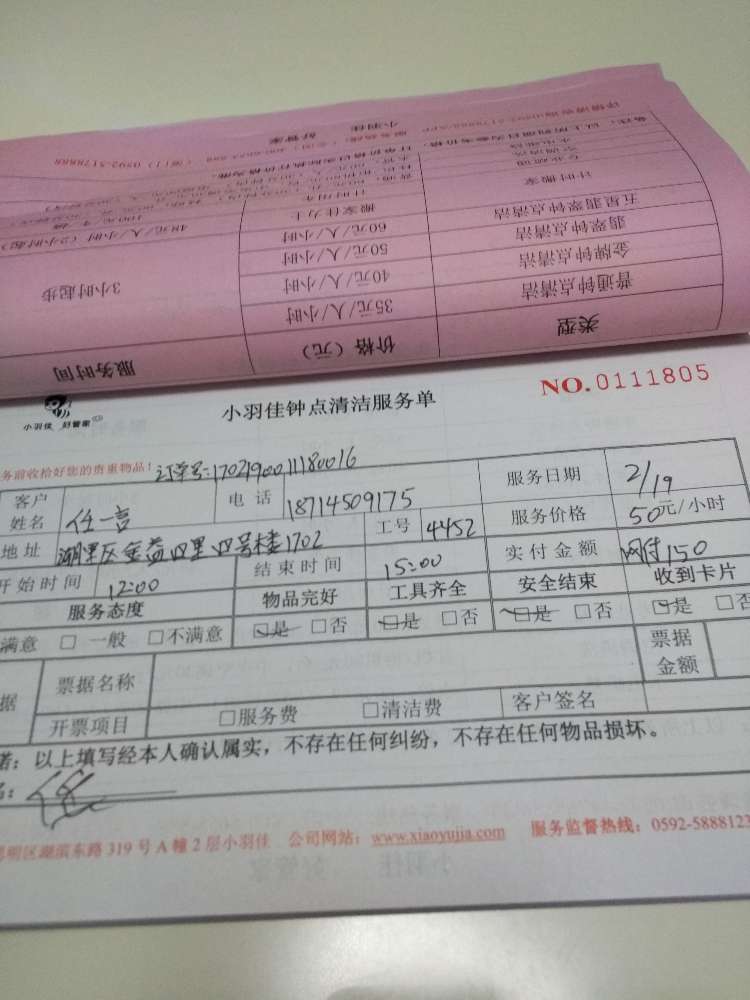 详情请咨询0592-5178888/APP
服务热线：
小羽佳 好管家
类型 价格（元） 服务时间
普通钟点清洁 35元/人/小时 3小时起步
金牌钟点清洁 40元/人/小时
翡翠钟点清洁 50元/人/小时
五星翡翠钟点清洁 60元/人/小时
计时搬家 搬家佳力士 48元/人/小时（2小时起）
计时用车
NO.0111805
小羽佳 好管家
小羽佳钟点清洁服务单
务前收拾好您的贵重物品！ 订单号:1702190011180016
客户姓名 任一言 电话 18714509175 服务日期 2/19
地址 湖里区金益四里四号楼1702 工号 4452 服务价格 50元/小时
开始时间 12:00 结束时间 15:00 实付金额 网付150
服务态度 物品完好 工具齐全 安全结束 收到卡片
满意 □ 一般 □不满意 ☑是 □否 ☑是 □否 ☑是 □否 ☑是 □否
据 票据名称 票据金额
开票项目 □服务费 □清洁费 客户签名
诺：以上填写经本人确认属实，不存在任何纠纷，不存在任何物品损坏。
名：任
思明区湖滨东路319号A幢2层小羽佳 公司网站：www.xiaoyujia.com 服务监督热线：0592-5888123